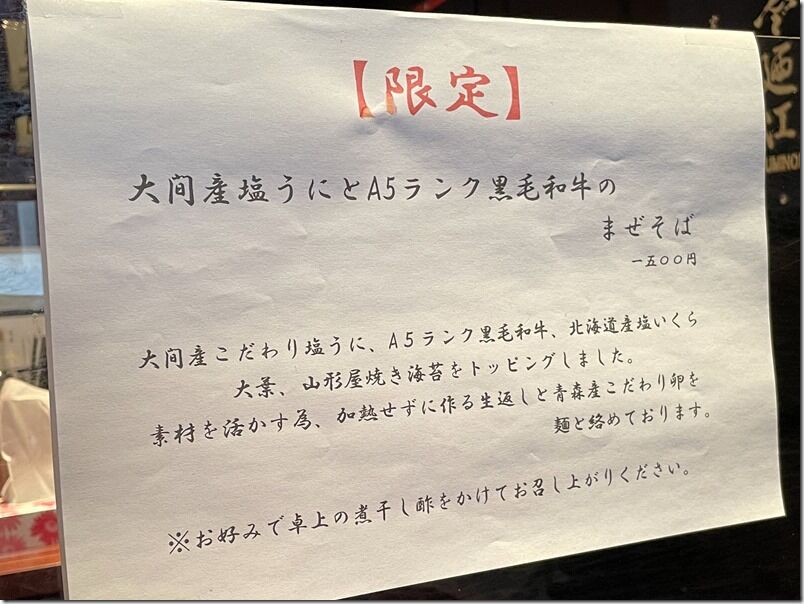 【限定】
大間産塩うにとA5ランク黒毛和牛の
まぜそば
一五〇〇円
大間産こだわり塩うに、A5ランク黒毛和牛、北海道産塩いくら
大葉、山形屋焼き海苔をトッピングしました。
素材を活かす為、加熱せずに作る生返しと青森産こだわり卵を
麺と絡めております。
※お好みで卓上の煮干し酢をかけてお召し上がりください。